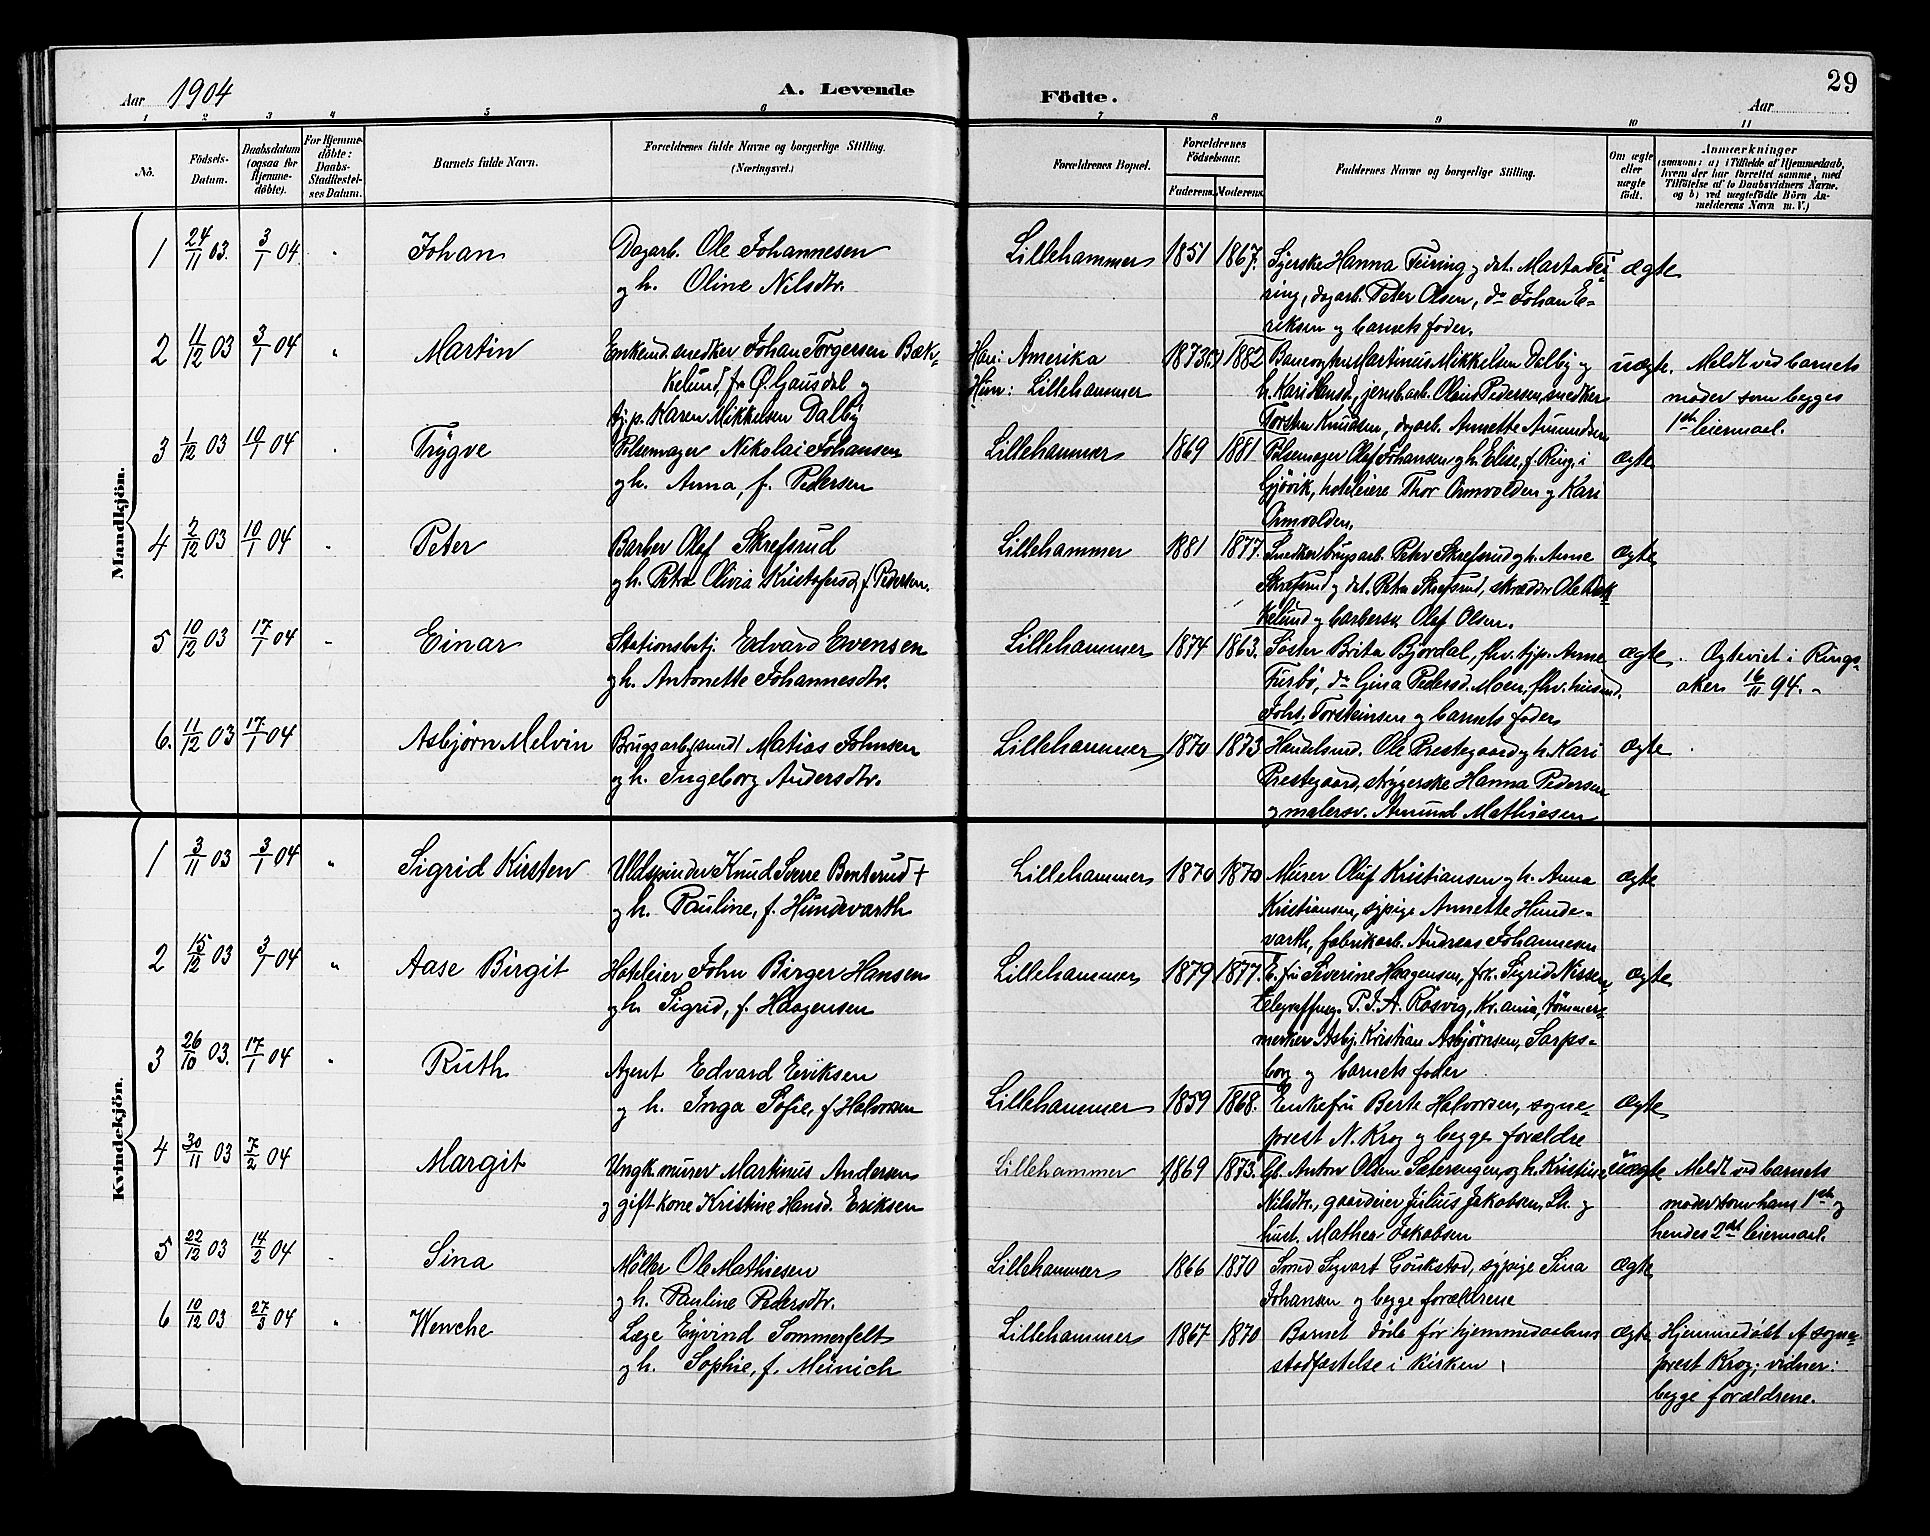 Aar 1904
A. Levende
Födte.
Aar
29
1 2 3 4 5 6 7 8 9 10 11
No.
Födsels-
Datum.
Daabsdatum
(ogsaa for
Hjemme-
döbte).
For Hjemme-
döbte:
Daabs-
Stadfæstel-
ses Datum.
Barnets fulde Navn.
Forældrenes fulde Navne og borgerlige Stilling.
(Næringsvei.)
Forældrenes Bopæl.
Forældrenes
Födselsaar.
Faderens.
Moderens.
Faddernes Navne og borgerlige Stilling.
Om ægte
eller
uægte
födt.
Anmærkninger
(saasom: a) i Tilfælde af Hjemmedaab,
hvem der har forrettet samme, med
Tilföielse af to Daabsvidners Navne,
og b) ved uægtefödte Börn An-
melderens Navn m. V.)
Mandkjön.
1 24/11 03. 3/1 04. Johan
Dagarb. Ole Johannesen
og h. Oline Nilsdtr.
Lillehammer 1851 1867.
Syerske Hanna Feiring og dat. Marta Fei-
ring, dagarb. Peter Olsen, do Johan E-
riksen og barnets fader.
ægte
2 11/12 03 3/1 04 " Martin
Enkemd. snedker Johan Torgersen Bæk-
kelund, fr. Ø. Gausdal og
tj. p. Karen Mikkelsen Dalby
Han: Amerika
Hun: Lillehammer
1873 1882
Banevogter Martinus Mikkelsen Dalby og
h. Kari Hansd., jernb.arb. Olaus Pedersen, snedker
Torsten Knudsen, dagarb. Annette Amundsen
uægte. Meldt ved barnets
moder som begges
1ste leiermaal.
3 1/12 03 10/1 04 Trygve
Pølsemager Nikolai Johansen
og h. Anna, f. Pedersen
Lillehammer 1869 1881
Pølsemager Olaf Johansen og h. Elise, f. Ring, i
Gjövik, hoteleiere Thor Ormvolden og Kari
Ormvolden.
ægte
4 2/12 03 10/1 04 Peter
Barber Olaf Skrefsrud
og h. Petra Olivia Kristofersd., f. Pedersen.
Lillehammer 1881 1877.
Snedker brugsarb. Peter Skrefsrud og h. Anne
Skrefsrud og dat. Petra Skrefsrud, skrædder Ole Bæk-
kelund og barbersv. Olaf Olsen.
ægte
5 10/12 03 17/1 04 Einar
Stationsbetj. Edvard Evensen
og h. Antonette Johannesdtr.
Lillehammer 1874 1863.
Søster Brita Bjørdal, fhv. tjp. Anne
Furbö, do Gina Pedersd. Moen, fhv. husmd.
Johs. Torsteinsen og barnets fader
ægte. Ægteviet i Rings-
aker 16/11 94.
6. 11/12 03 17/1 04 Asbjørn Melvin
Brugsarb. (smed) Matias Johnsen
og h. Ingeborg Andersdtr.
Lillehammer 1870 1873
Handelsmd. Ole Prestegaard og h. Kari
Prestegaard, strygerske Hanna Pedersen
og malersv. Amund Mathiesen
ægte
Kvindekjön.
1 3/11 03 3/1 04 " Sigrid Kirsten
Uldspinder Knud Sverre Benterud +
og h. Pauline, f. Hundevarth
Lillehammer 1870 1870
Murer Oluf Kristiansen og h. Anna
Kristiansen, sypige Annette Hunde-
varth, fabrikarb. Andreas Johannesen
ægte
2 15/12 03 3/1 04 " Aase Birgit
Hoteleier John Birger Hansen
og h. Sigrid, f. Haagensen
Lillehammer 1879 1877.
E. fru Severine Haagensen, frk. Sigrid Nissen,
Telegraffuldm. P. J. A. Rosvig, Kr.ania, tømmer-
merker Asbj. Kristian Asbjørnsen, Sarps-
borg og barnets fader
ægte
3 26/10 03. 17/1 04 " Ruth
Agent Edvard Eriksen
og h. Inga Sofie, f. Halvorsen
Lillehammer 1859 1868.
Enkefru Berte Halvorsen, sogne-
prest N. Krog og begge forældre
ægte
4 30/11 03 7/2 04 Margit
Ungk. murer Martinus Andersen
og gift kone Kristine Hansd. Eriksen
Lillehammer 1869 1873.
Gb. Anton Olsen Sæterengen, og h. Kristine
Nilsdtr., gaardeier Julius Jakobsen, Lh. og
hust. Mathea Jakobsen
uægte Meldt ved barnets
moder som hans 1ste og
hendes 2det leiermaal.
5 22/12 03 14/2 04 Sina
Møller Ole Mathiesen
og h. Pauline Pedersdtr.
Lillehammer 1866 1870
Smed Sigvart Goukstad, sypige Sina
Johansen og begge forældrene
ægte
6 10/12 03 27/3 04 " Wenche
Læge Eyvind Sommerfelt
og h. Sophie, f. Meinich
Lillehammer 1867 1870
Barnet døde før hjemmedaabens
stadfæstelse i kirken
ægte Hjemmedøbt af sogne-
prest Krog; vidner:
begge forældrene.